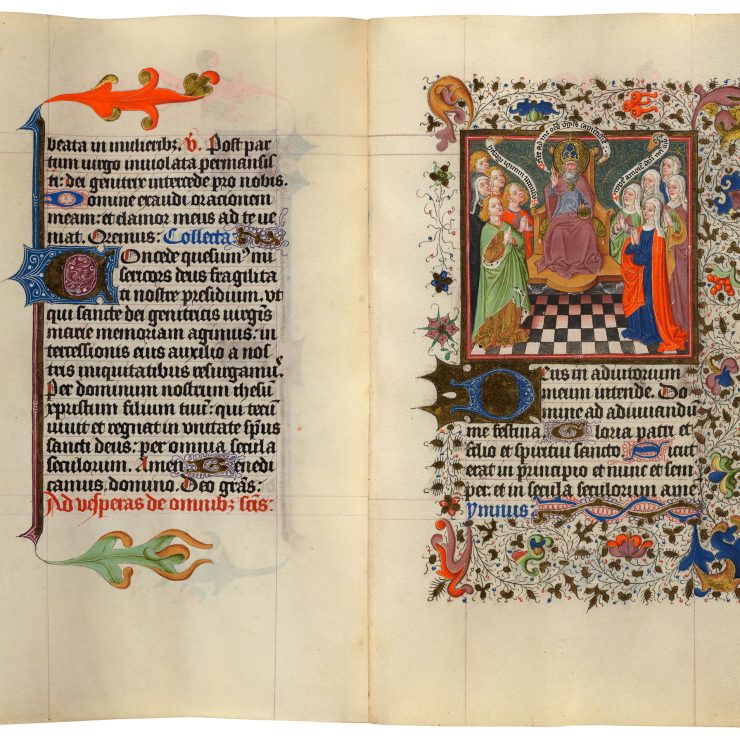 beata in mulieribꝫ. V. Post par
tum uirgo inuiolata permansis
ti: dei genitrix intercede pro nobis.
Domine exaudi orationem
meam: et clamor meus ad te ue
niat. Oremus: Collecta
Concede quesumꝰ mi
sericors deus fragilita
ti nostre presidium. vt
qui sancte dei genitricis uirgīs
marie memoriam agimus: in
tercessionis eius auxilio a nos
tris iniquitatibus resurgamꝰ.
Per dominum nostrum ihesum
xpristum filium tuū: qui tecū
uiuit et regnat in unitate sp̄us
sancti deus: per omnia secula
seculorum. Amen Benedi
camus domino. Deo gr̄as:
Ad vesperas de omnibꝫ sc̄is:
Deus in adiutorium
meum intende. Do
mine ad adiuuandū
me festina. Gloria patri et
filio et spiritui sancto. Sicut
erat in principio et nunc et sem
per. et in secula seculorum ame
ymnus